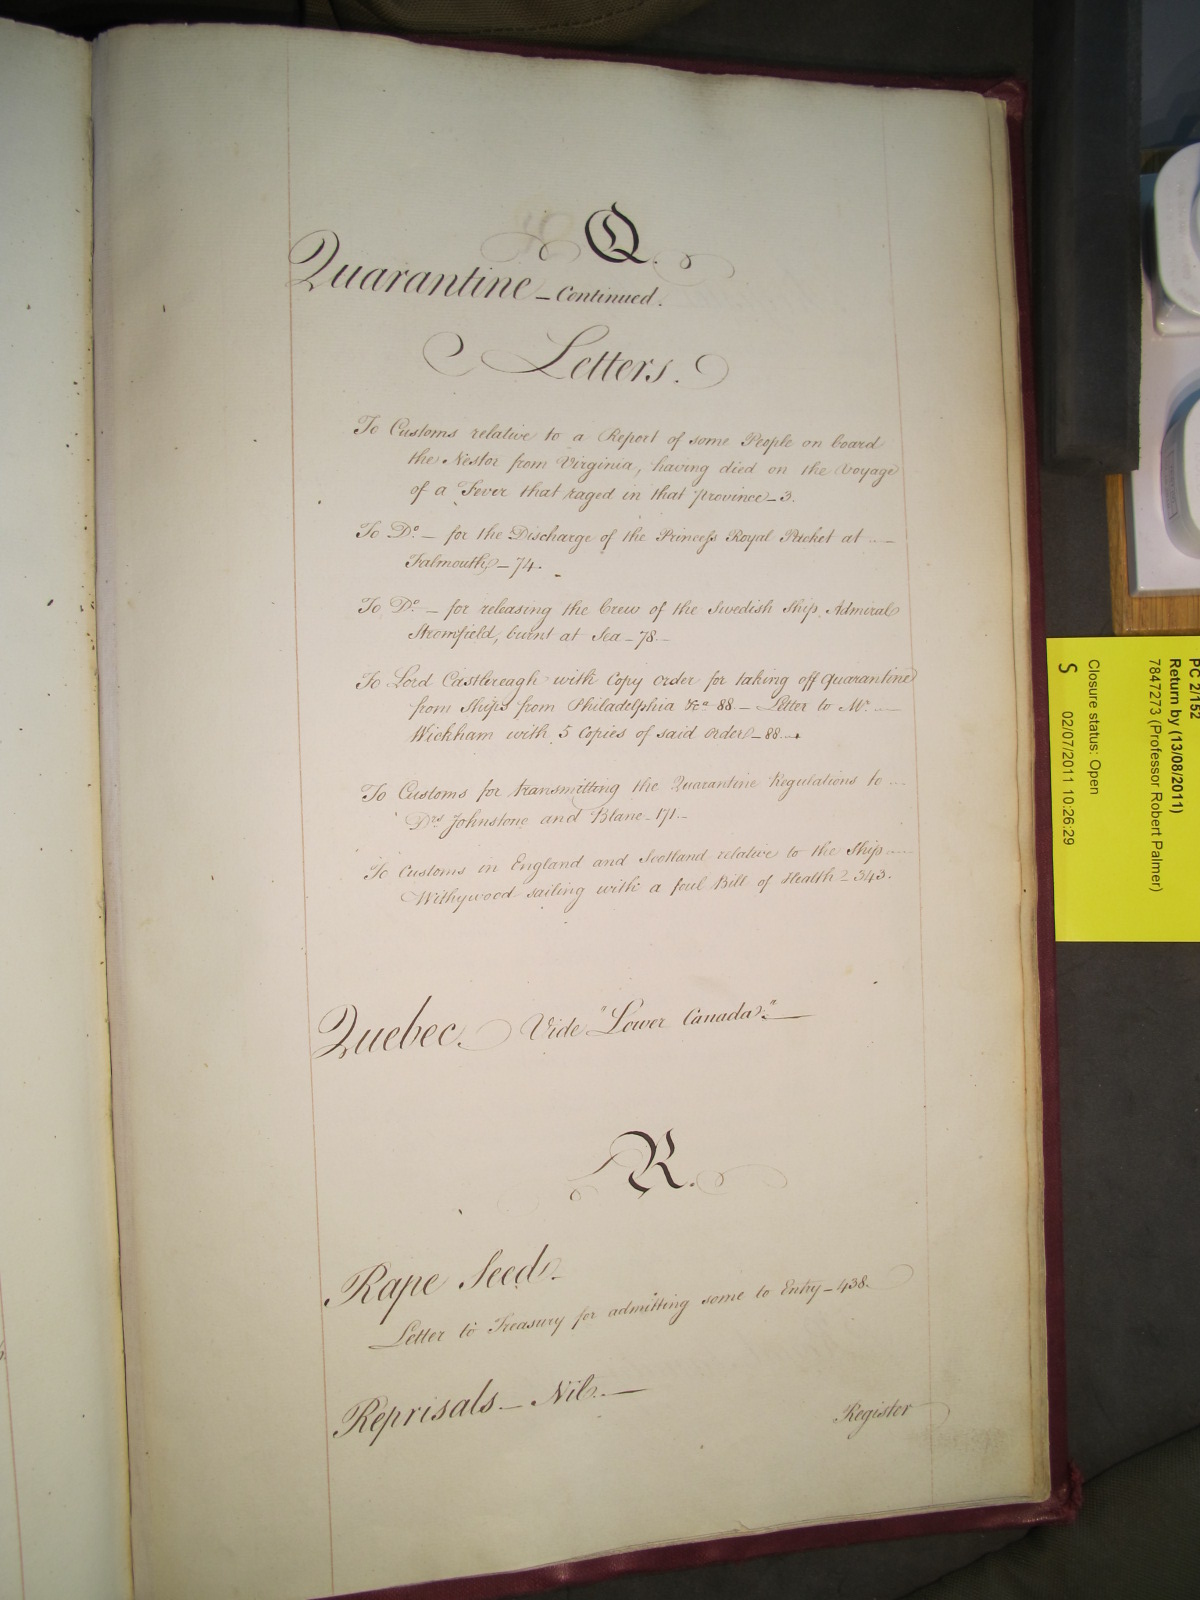 Q.
Quarantine - Continued.
Letters.
To Customs relative to a Report of some People on board
the Nestor from Virginia, having died on the Voyage
of a Fever that raged in that province - 3.
To Do. - for the Discharge of the Princess Royal Packet at
Falmouth - 74.
To Do. - for releasing the Crew of the Swedish Ship Admiral
Stromfield, burnt at Sea - 78 -
To Lord Castlereagh with Copy order for taking off Quarantine
from Ships from Philadelphia &ca - 88. - Letter to Mr.
Wickham with 5 Copies of said order - 88.
To Customs for transmitting the Quarantine Regulations to
Drs. Johnstone and Blane - 171. -
To Customs in England and Scotland relative to the Ship
Withywood sailing with a foul Bill of Health - 343.
Quebec. Vide "Lower Canada".
R.
Rape Seed.
Letter to Treasury for admitting some to Entry - 438.
Reprisals - Nil. -
Register
PC 2/152
Return by (13/08/2011)
7847273 (Professor Robert Palmer)
Closure status: Open
S 02/07/2011 10:26:29